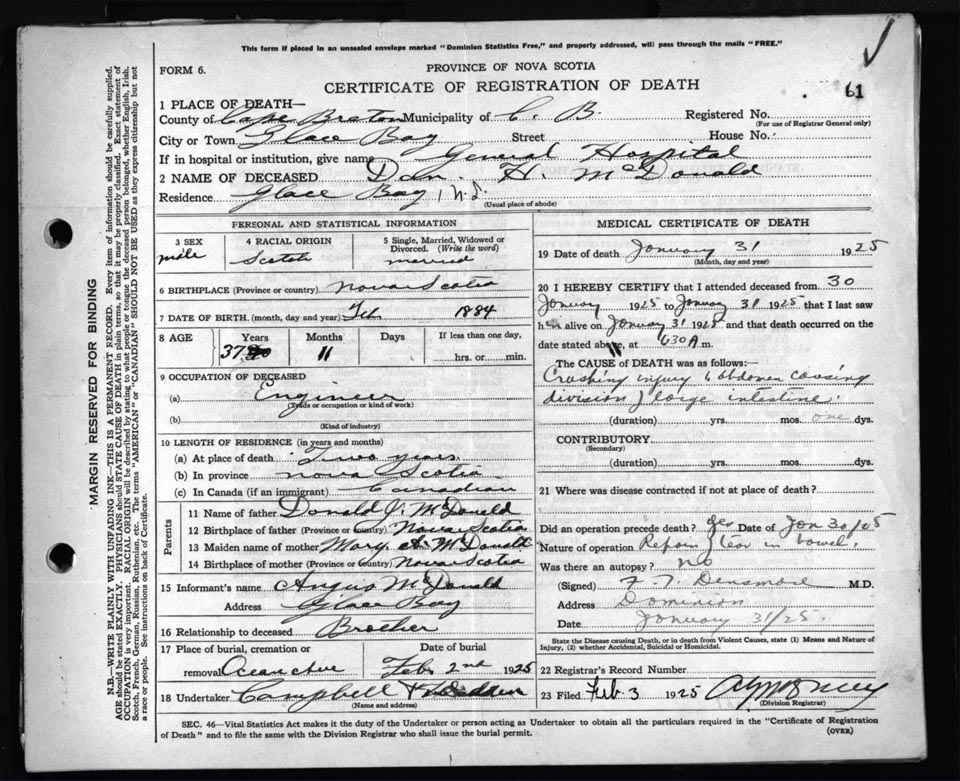 This form if placed in an unsealed envelope marked "Dominion Statistics Free," and properly addressed, will pass through the mails "FREE."
FORM 6.
PROVINCE OF NOVA SCOTIA
CERTIFICATE OF REGISTRATION OF DEATH
61
1 PLACE OF DEATH—
County of Cape Breton Municipality of C. B. Registered No.
(For use of Registrar General only)
City or Town Glace Bay Street House No.
If in hospital or institution, give name General Hospital
2 NAME OF DECEASED Dan. H. McDonald
Residence Glace Bay, N.S.
(Usual place of abode)
PERSONAL AND STATISTICAL INFORMATION
3 SEX male
4 RACIAL ORIGIN Scotch
5 Single, Married, Widowed or Divorced. (Write the word) married
6 BIRTHPLACE (Province or country) Nova Scotia
7 DATE OF BIRTH. (month, day and year) Feb 1884
8 AGE Years Months Days If less than one day,
37 11 hrs. or min.
9 OCCUPATION OF DECEASED
(a) Engineer
(Trade or occupation or kind of work)
(b)
(Kind of industry)
10 LENGTH OF RESIDENCE (in years and months)
(a) At place of death Two years
(b) In province Nova Scotia
(c) In Canada (if an immigrant) Canadian
Parents
11 Name of father Donald J. McDonald
12 Birthplace of father (Province or Country) Nova Scotia
13 Maiden name of mother Mary A McDonald
14 Birthplace of mother (Province or Country) Nova Scotia
15 Informant's name Angus McDonald
Address Glace Bay
16 Relationship to deceased Brother
17 Place of burial, cremation or Date of burial
removal Feb 2nd 1925
18 Undertaker Campbell
(Name and address)
MEDICAL CERTIFICATE OF DEATH
19 Date of death January 31 1925
(Month, day and year)
20 I HEREBY CERTIFY that I attended deceased from 30
January 1925 to January 31 1925 that I last saw
h alive on January 31 1925 and that death occurred on
date stated above, at 630 A.m.
The CAUSE OF DEATH was as follows:—
Crushing injury to abdomen causing
division of large intestines.
(duration) yrs. mos. one dys.
CONTRIBUTORY.
(Secondary)
(duration) yrs. mos. dys.
21 Where was disease contracted if not at place of death?
Did an operation precede death? yes Date of Jan 30/25
Nature of operation Repair of tear in bowel.
Was there an autopsy? no
(Signed) F. T. Densmore M.D.
Address Dominion
Date January 31/25.
State the Disease causing Death, or in death from Violent Causes, state (1) Means and Nature of
Injury, (2) whether Accidental, Suicidal or Homicidal.
22 Registrar's Record Number
23 Filed Feb 3 1925
(Division Registrar)
SEC. 46—Vital Statistics Act makes it the duty of the Undertaker or person acting as Undertaker to obtain all the particulars required in the "Certificate of Registration
of Death" and to file the same with the Division Registrar who shall issue the burial permit.
(OVER)
MARGIN RESERVED FOR BINDING
N.B.—WRITE PLAINLY WITH UNFADING INK—THIS IS A PERMANENT RECORD. Every item of information should be carefully supplied.
AGE should be stated EXACTLY. PHYSICIANS should STATE CAUSE OF DEATH in plain terms, so that it may be properly classified. Exact statement of
OCCUPATION is very important. RACIAL ORIGIN will be described by stating to what people or tongue the deceased person belonged, whether English, Irish,
Scotch, French, German, Russian, Ruthenian, etc. The terms "AMERICAN" or "CANADIAN" SHOULD NOT BE USED as they express citizenship but not
a race or people. See instructions on back of Certificate.